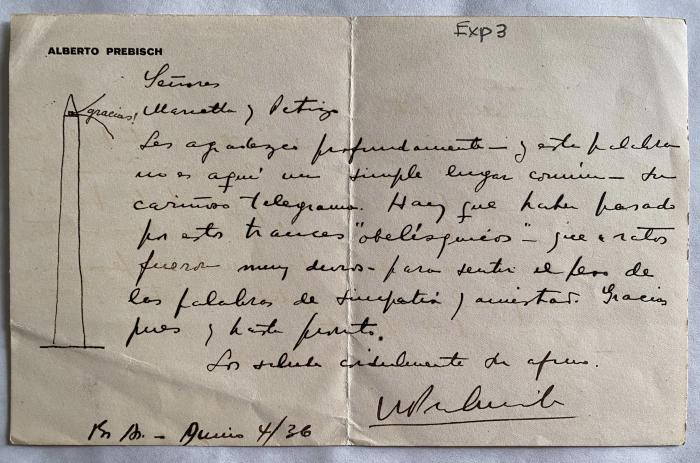 Exp 3
ALBERTO PREBISCH
Señores
gracias!
Marcetta y Petrizo
Les agradezco profundamente – y esta palabra
no es aquí un simple lugar común – su
cariñoso telegrama. Hay que haber pasado
por estos trances "obelísquicos" – que a ratos
fueron muy duros – para sentir el peso de
las palabras de simpatía y amistad. Gracias
pues y hasta pronto.
Los saluda cordialmente
Bs As. – Junio 4/36